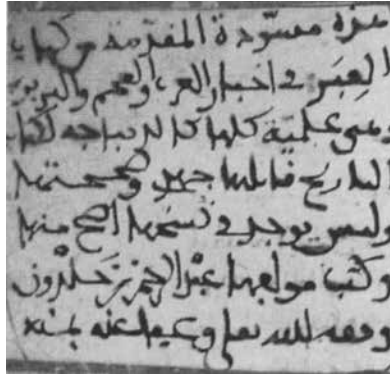 هذه مسودة المقدمة من كتاب
العِبَر في اخبار العرب والعجم والبربر
وهي علمية كلها كالديباجة لكتاب
التاريخ قابلتها جهدي وصححتها
وليس يوجد في نسخها اصح منها
وكتب مولفها عبد الرحمن بن خلدون
وفقه الله تعالى وعفا عنه بمنه